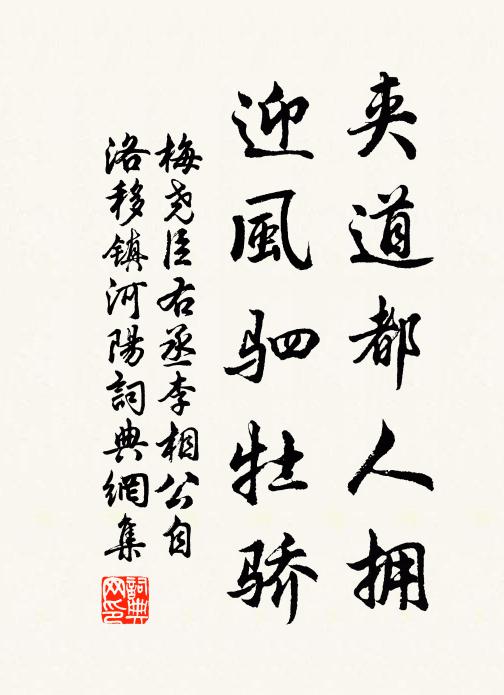 夹道都人拥
迎風驷牡骄
梅尧臣右丞李相公自
洛移镇河陽詞典網集
詞典网印